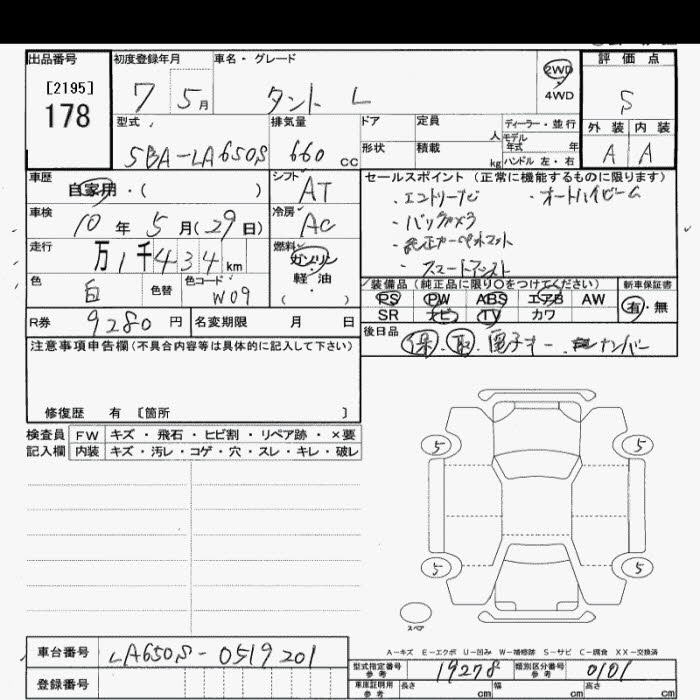 出品番号 初度登録年月 車名・グレード 2WD 評価点
[2195] 7 5月 タント L 4WD S
178 型式 排気量 ドア 定員 人 ディーラー・並行 外装 内装
5BA-LA650S 660 cc 形状 積載 kg モデル年式 年 ハンドル 左・右 A A
車歴 自家用・( ) シフト AT セールスポイント(正常に機能するものに限ります)
・エントリーナビ ・オートハイビーム
車検 10年 5月(29日) 冷房 AC ・バックカメラ
走行 万1千434km 燃料 ガソリン ・純正カーペットマット
軽・油 ・スマートアシスト
色 白 色替 色コード W09 ( ) 装備品(純正品に限り○をつけてください) 新車保証書
PS PW ABS エアB AW 有・無
R券 9280円 名変期限 月 日 SR ナビ TV カワ
後日品 保・取・電子キー・ナンバー
注意事項申告欄(不具合内容等は具体的に記入して下さい)
修復歴 有 [箇所 ]
検査員 FW キズ・飛石・ヒビ割・リペア跡・×要
記入欄 内装 キズ・汚レ・コゲ・穴・スレ・キレ・破レ
5 5
5 5
スペア
A-キズ E-エクボ U-凹み W-補修跡 S-サビ C-腐食 XX-交換済
車台番号 LA650S-0519201 型式指定番号 参考 19278 類別区分番号 参考 0101
登録番号 車庫証明用 参考 長さ cm 幅 cm 高さ cm